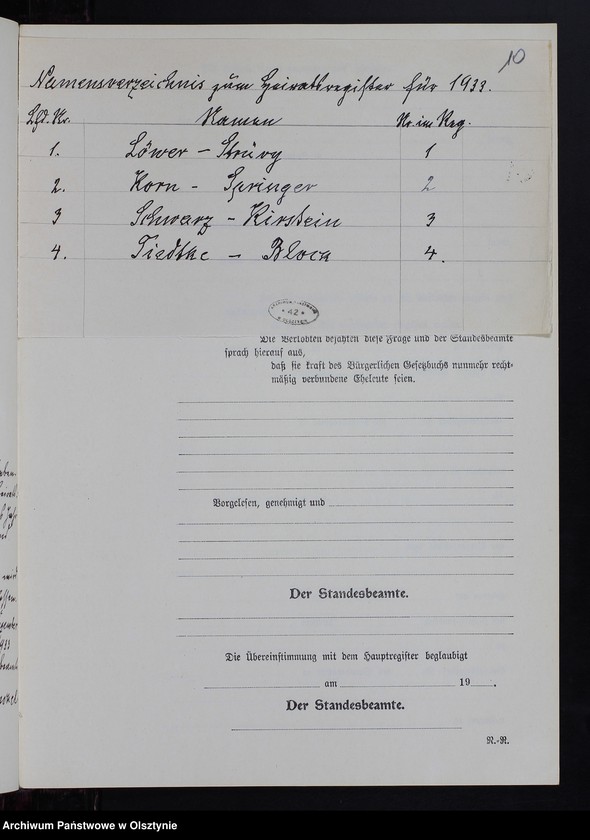 10
Namensverzeichnis zum Heiratsregister für 1933.
Lfd. Nr. Namen Nr. im Reg.
1. Löwer – Strüvy 1
2. Korn - Springer 2
3 Schwarz - Kirstein 3
4. Tiedtke - Block 4.
42
Die Verlobten bejahten diese Frage und der Standesbeamte
sprach hierauf aus,
daß sie kraft des Bürgerlichen Gesetzbuchs nunmehr recht-
mäßig verbundene Eheleute seien.
Vorgelesen, genehmigt und
Der Standesbeamte.
Die Übereinstimmung mit dem Hauptregister beglaubigt
am 19 .
Der Standesbeamte.
R.-R.
Archiwum Państwowe w Olsztynie